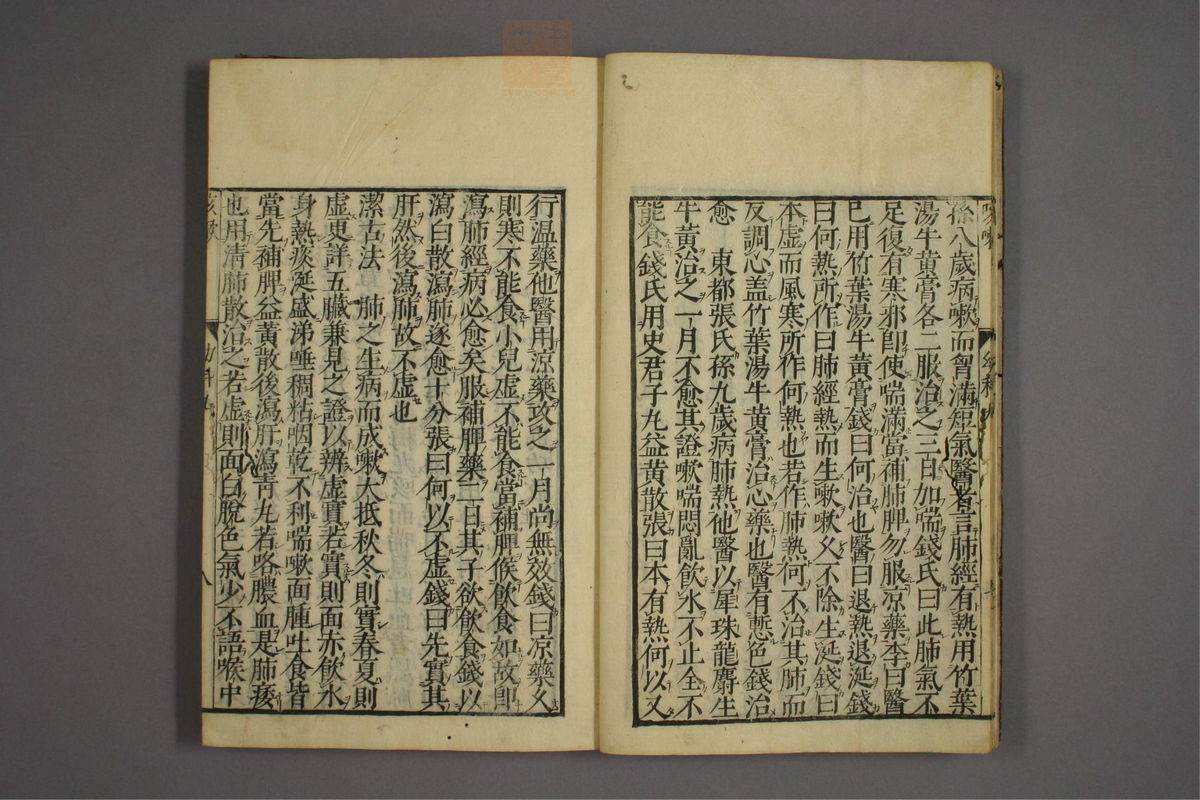 孫八歲病嗽而胷滿短氣醫者言肺經有熱用竹葉
湯牛黃膏各二服治之三日加喘錢氏曰此肺氣不
足復有寒邪卽使喘滿當補肺脾勿服凉藥李曰醫
已用竹葉湯牛黃膏錢曰何治也醫曰退熱退涎錢
曰何熱所作曰肺經熱而生嗽嗽久不除生涎錢曰
本虛而風寒所作何熱也若作肺熱何不治其肺而
反調心盖竹葉湯牛黃膏治心藥也醫有慙色錢治
愈　東都張氏孫九歲病肺熱他醫以犀珠龍麝生
牛黃治之一月不愈其證嗽喘悶亂飮水不止全不
能食錢氏用史君子丸益黃散張曰本有熱何以又
行温藥他醫用涼藥攻之一月尚無效錢曰凉藥久
則寒不能食小兒虛不能食當補脾候飮食如故卽
瀉肺經病必愈矣服補脾藥二日其子欲飮食錢以
瀉白散瀉肺遂愈十分張曰何以不虛錢曰先實其
肝然後瀉肺故不虛也
潔古法　肺之生病而成嗽大抵秋冬則實春夏則
虛更詳五臟兼見之證以辨虛實若實則面赤飮水
身熱痰涎盛涕唾稠粘咽乾不利喘嗽面腫吐食皆
當先補脾益黃散後瀉肝瀉靑丸若咯膿血是肺痿
也用淸肺散治之若虛則面白脫色氣少不語喉中
八